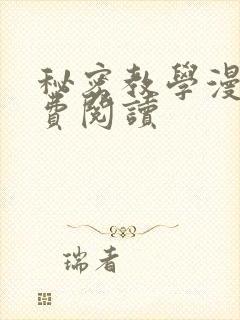 秘密教學漫
費閱讀
瑞者